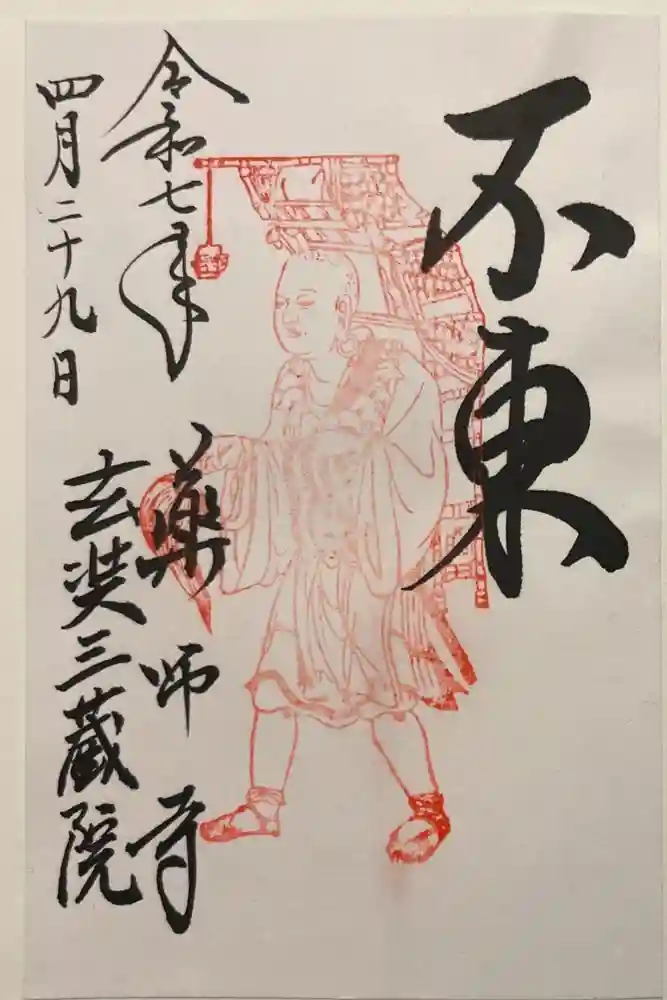 不東
令和七年
四月二十九日
薬師寺
玄奘三蔵院